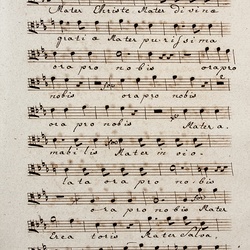 Mater Christe Mater divina
gratia Mater purissima
ora pro nobis ora pro
nobis ora pro nobis
ora pro nobis Mater a
mabilis Mater in vio
lata ora pro nobis
ora pro nobis Mater
Crea toris Mater Salva